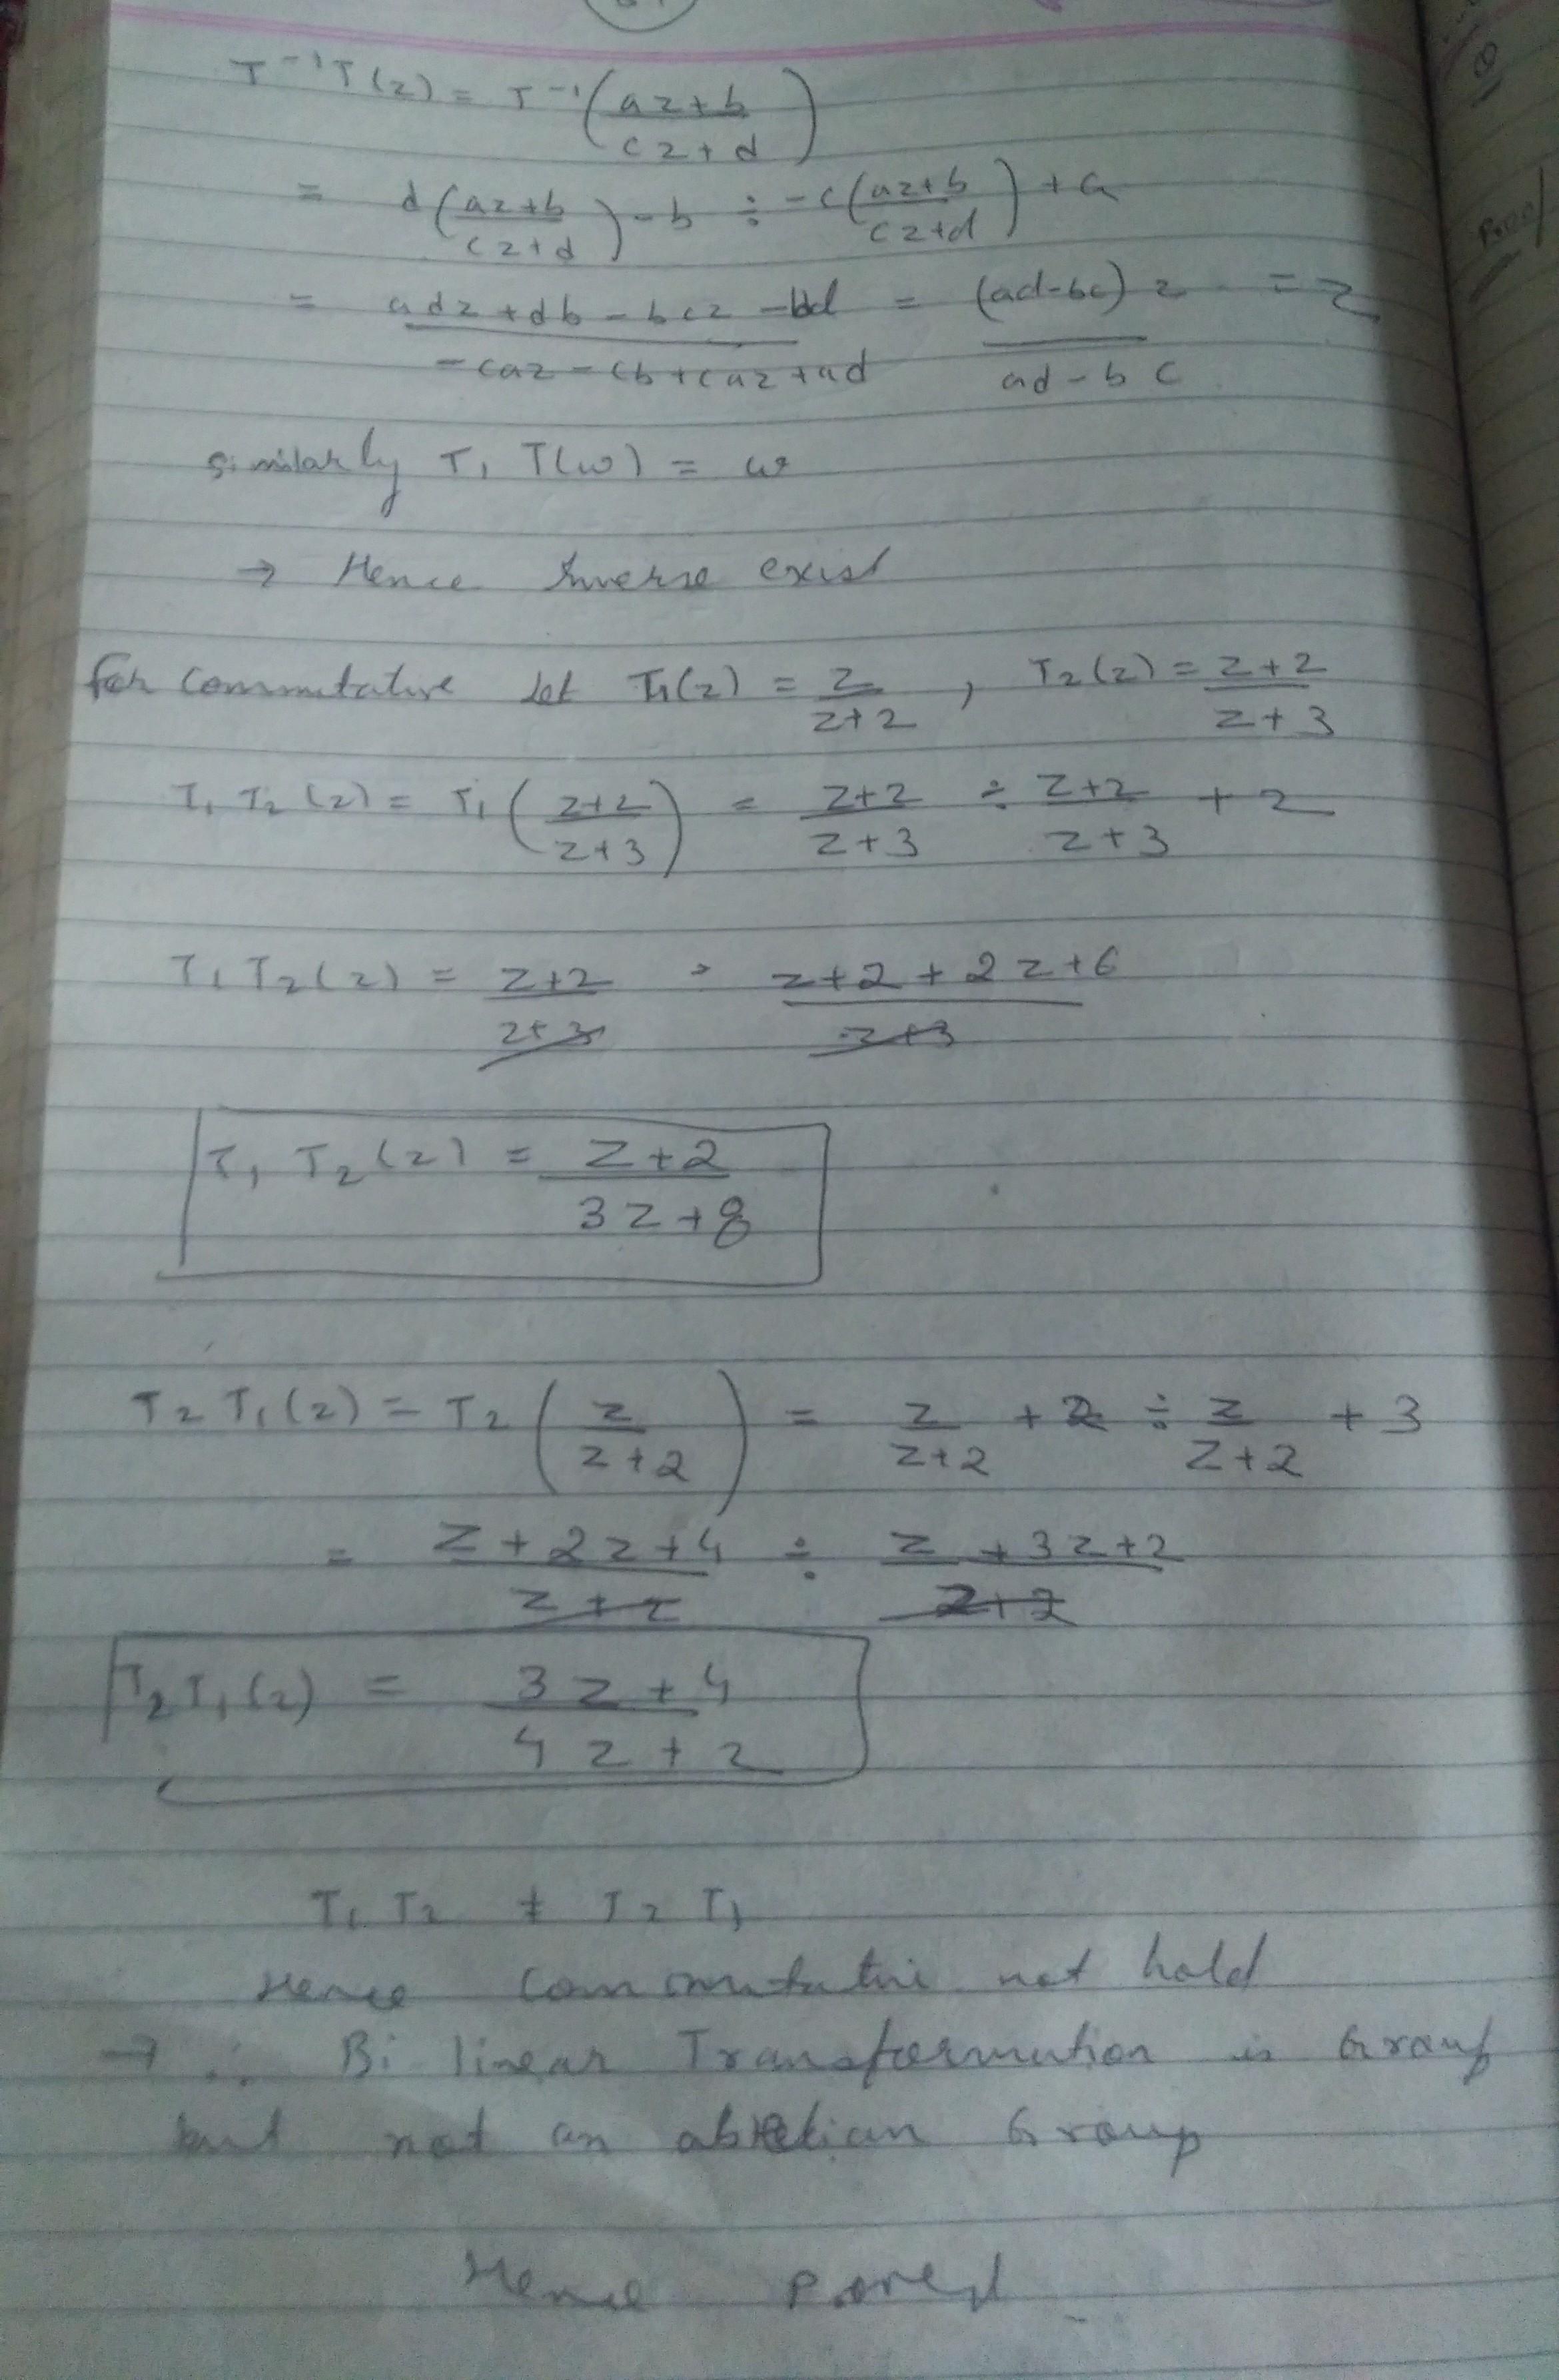 T⁻¹T(z) = T⁻¹((az+b)/(cz+d))
= d((az+b)/(cz+d)) - b ÷ -c((az+b)/(cz+d)) + a
= (adz+db-bcz-bd)/(-caz-cb+caz+ad) = ((ad-bc)z)/(ad-bc) = z
similarly T₁ T(w) = w
→ Hence Inverse exist
for commutative let T₁(z) = z/(z+2) , T₂(z) = (z+2)/(z+3)
T₁ T₂(z) = T₁((z+2)/(z+3)) = (z+2)/(z+3) ÷ (z+2)/(z+3) + 2
T₁T₂(z) = (z+2)/(z+3) ÷ (z+2+2z+6)/(z+3)
T₁ T₂(z) = (z+2)/(3z+8)
T₂T₁(z) = T₂(z/(z+2)) = z/(z+2) + 2 ÷ z/(z+2) + 3
= (z+2z+4)/(z+2) ÷ (z+3z+2)/(z+2)
T₂T₁(z) = (3z+4)/(4z+2)
T₁T₂ ≠ T₂T₁
Hence commutative not hold
→ ∴ Bi linear Transformation is Group
but not an abelian Group
Hence Proved